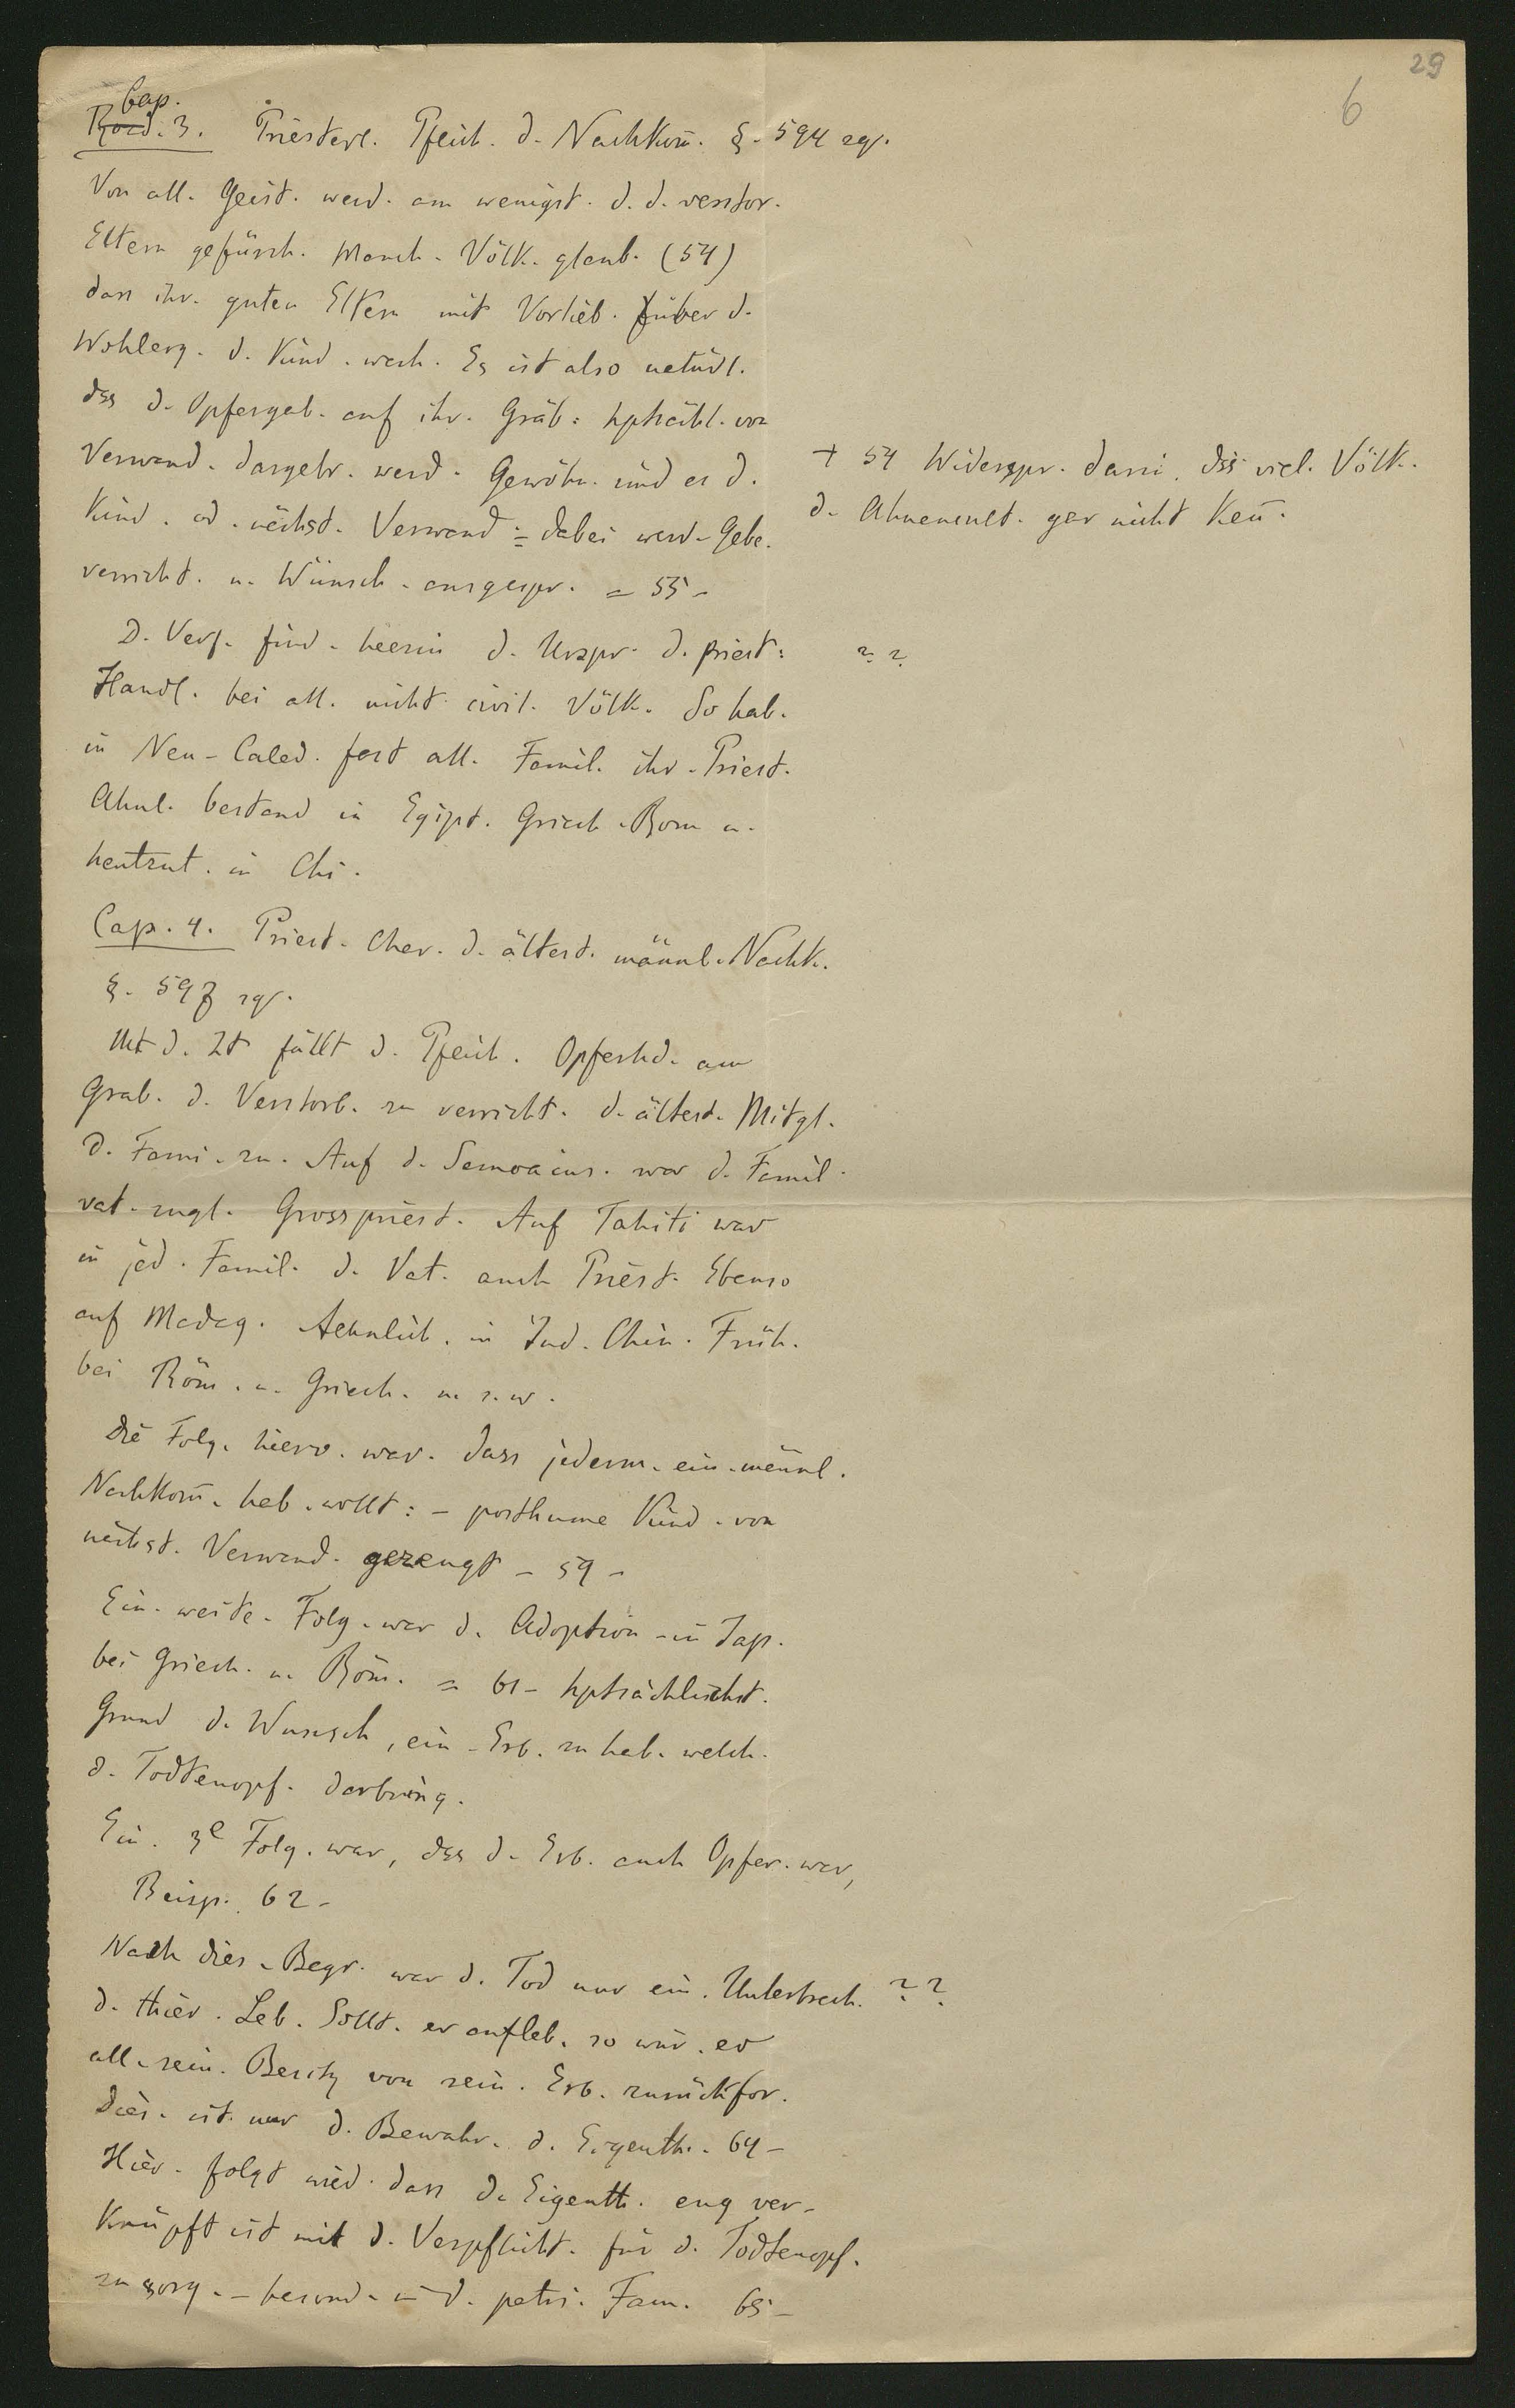 29
6
Cap.
3. Priesterl. Pflich. d. Nachkom̄. §. 594 sq.
Von all. Geist. werd. am wenigst. d. d. verstor.
Eltern gefürch. Manch. Völk. glaub. (54)
dass ihr. guten Eltern mit Vorlieb. über d.
Wohlerg. d. Kind. wach. Es ist also natürl.
dss d. Opfergab. auf ihr. Gräb: hptsächl. von
Verwand. dargebr. werd. Gewöhn. sind es d.
Kind. od. nächst. Verwand = dabei werd. Gebe.
verricht. u. Wünsch. ausgespr. = 55 -
+ 54 Widerspr. darin. dss viel. Völk.
d. Ahnencult. gar nicht ken̄.
D. Verf. find. hierin d. Urspr. d. priest:
? ?
Handl. bei all. nicht civil. Völk. So hab.
in Neu-Caled. fast all. Famil. ihr. Priest.
Ahnl. bestand in Egipt. Griech. Rom u.
heutzut. in Chi.
Cap. 4. Priest. Char. d. ältest. männl. Nachk.
§. 597 sq.
Mt d. Zt fällt d. Pflich. Opferhd. am
Grab. d. Verstorb. zu verricht. d. ältest. Mitgl.
d. Fami. zu. Auf d. Samoains. war d. Famil.
vat. zugl. Grosspriest. Auf Tahiti war
in jed. Famil. d. Vat. auch Priest. Ebenso
auf Madag. Aehnlich. in Ind. Chin. Früh.
bei Röm. u. Griech. u. s. w.
Die Folg. hierv. war. dass jederm. ein. männl.
Nachkom̄. hab. wollt: - posthume Kind. von
nächst. Verwand. gezeugt - 59 -
Ein. weite. Folg. war d. Adoption - in Jap.
bei Griech. u. Röm. = 61 - hptsächlichst.
Grund d. Wunsch, ein. Erb. zu hab. welch.
d. Todtenopf. darbring.
Ein. 3e Folg. war, dss d. Erb. auch Opfer. war,
Beisp. 62 -
Nach dies. Begr. war d. Tod nur ein. Unterbrech. ? ?
d. thier. Leb. Sollt. er aufleb. so wür. er
all. sein. Besitz von sein. Erb. zurückfor.
Dies. ist nur d. Bewahr. d. Eigenth. 64 -
Hier. folgt wied. dass d. Eigenth. eng ver-
knüpft ist mit d. Verpflicht. für d. Todtenopf.
zu sorg. - besond. in d. patri. Fam. 65 -